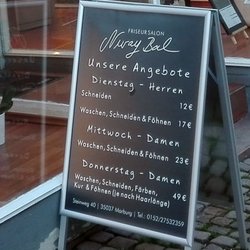 FRISEURSALON
Nuray Bal
Unsere Angebote
Dienstag - Herren
Schneiden 12€
Waschen, Schneiden & Föhnen 17€
Mittwoch - Damen
Waschen, Schneiden & Föhnen 23€
Donnerstag - Damen
Waschen, Schneiden, Färben, 49€
Kur & Föhnen (je nach Haarlänge)
Steinweg 40 | 35037 Marburg | Tel. 0152/27532359